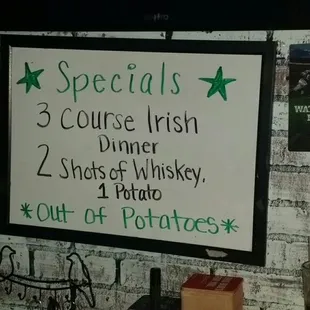 Specials
3 Course Irish
Dinner
2 Shots of Whiskey,
1 Potato
*Out of Potatoes*